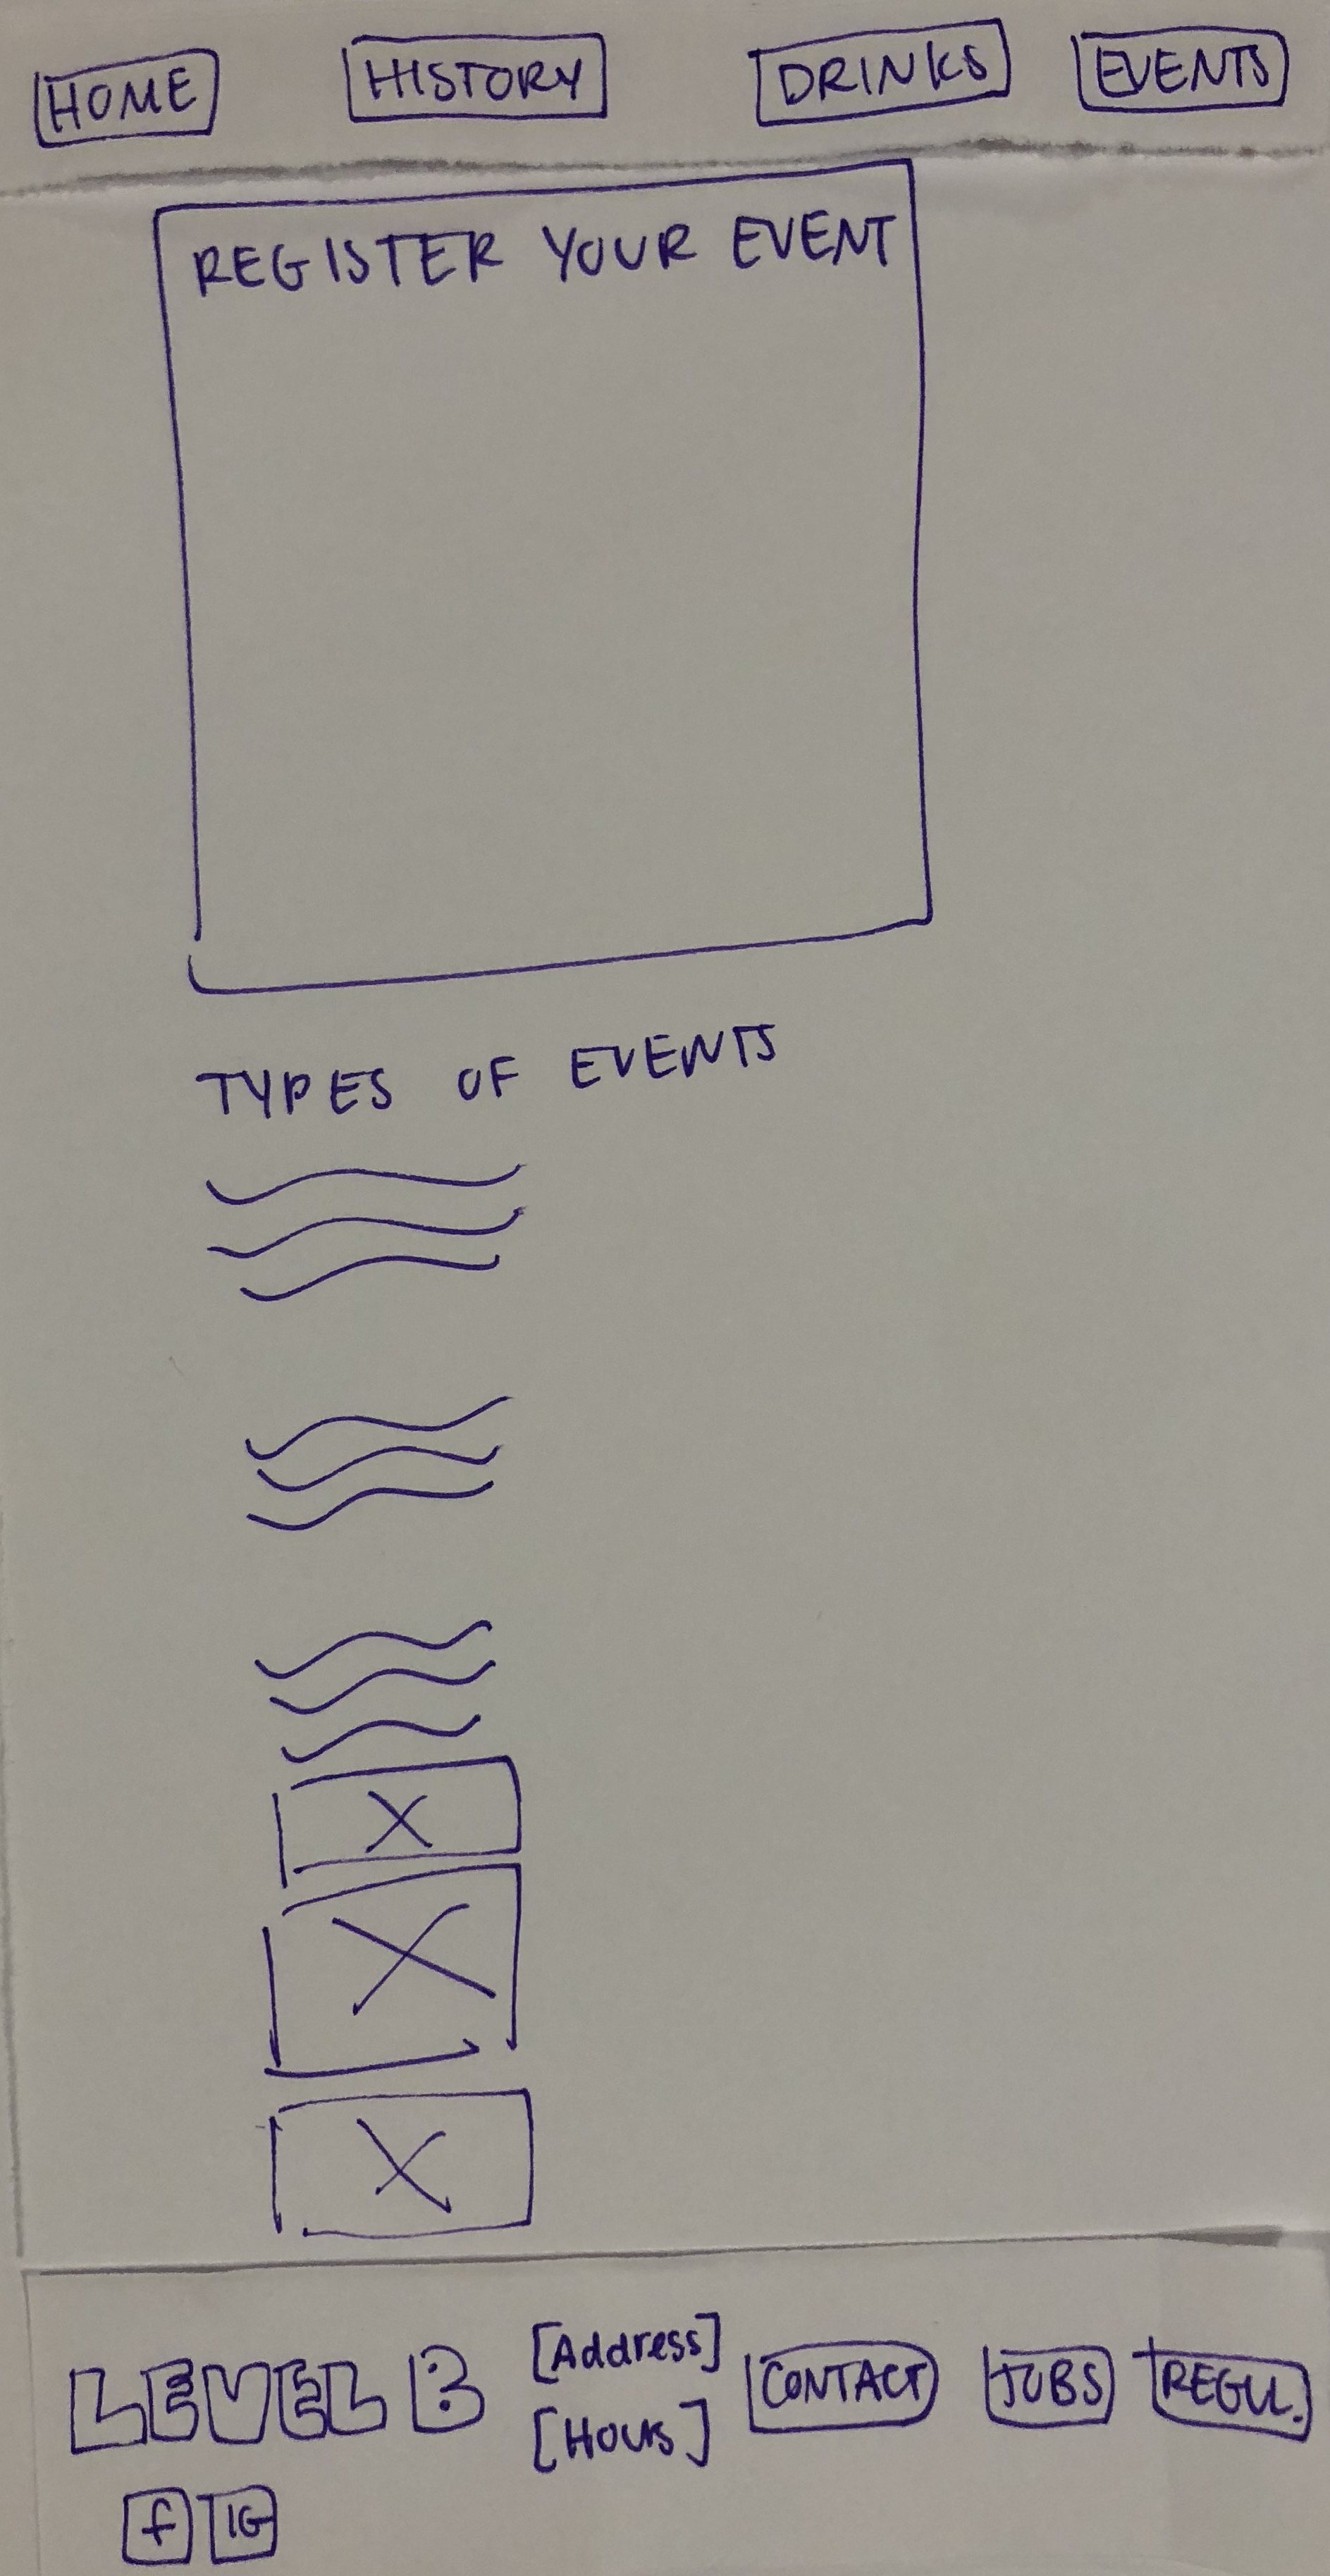 HOME HISTORY DRINKS EVENTS
REGISTER YOUR EVENT
TYPES OF EVENTS
LEVEL B [Address] CONTACT JOBS REGU.
[Hours]
f IG